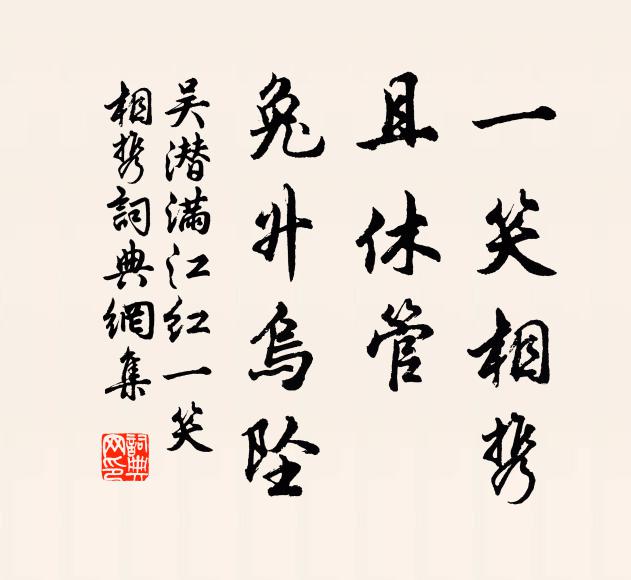 一笑相携
且休管
兔升烏坠
吴潜满江红一笑
相携詞典網集
詞典网印